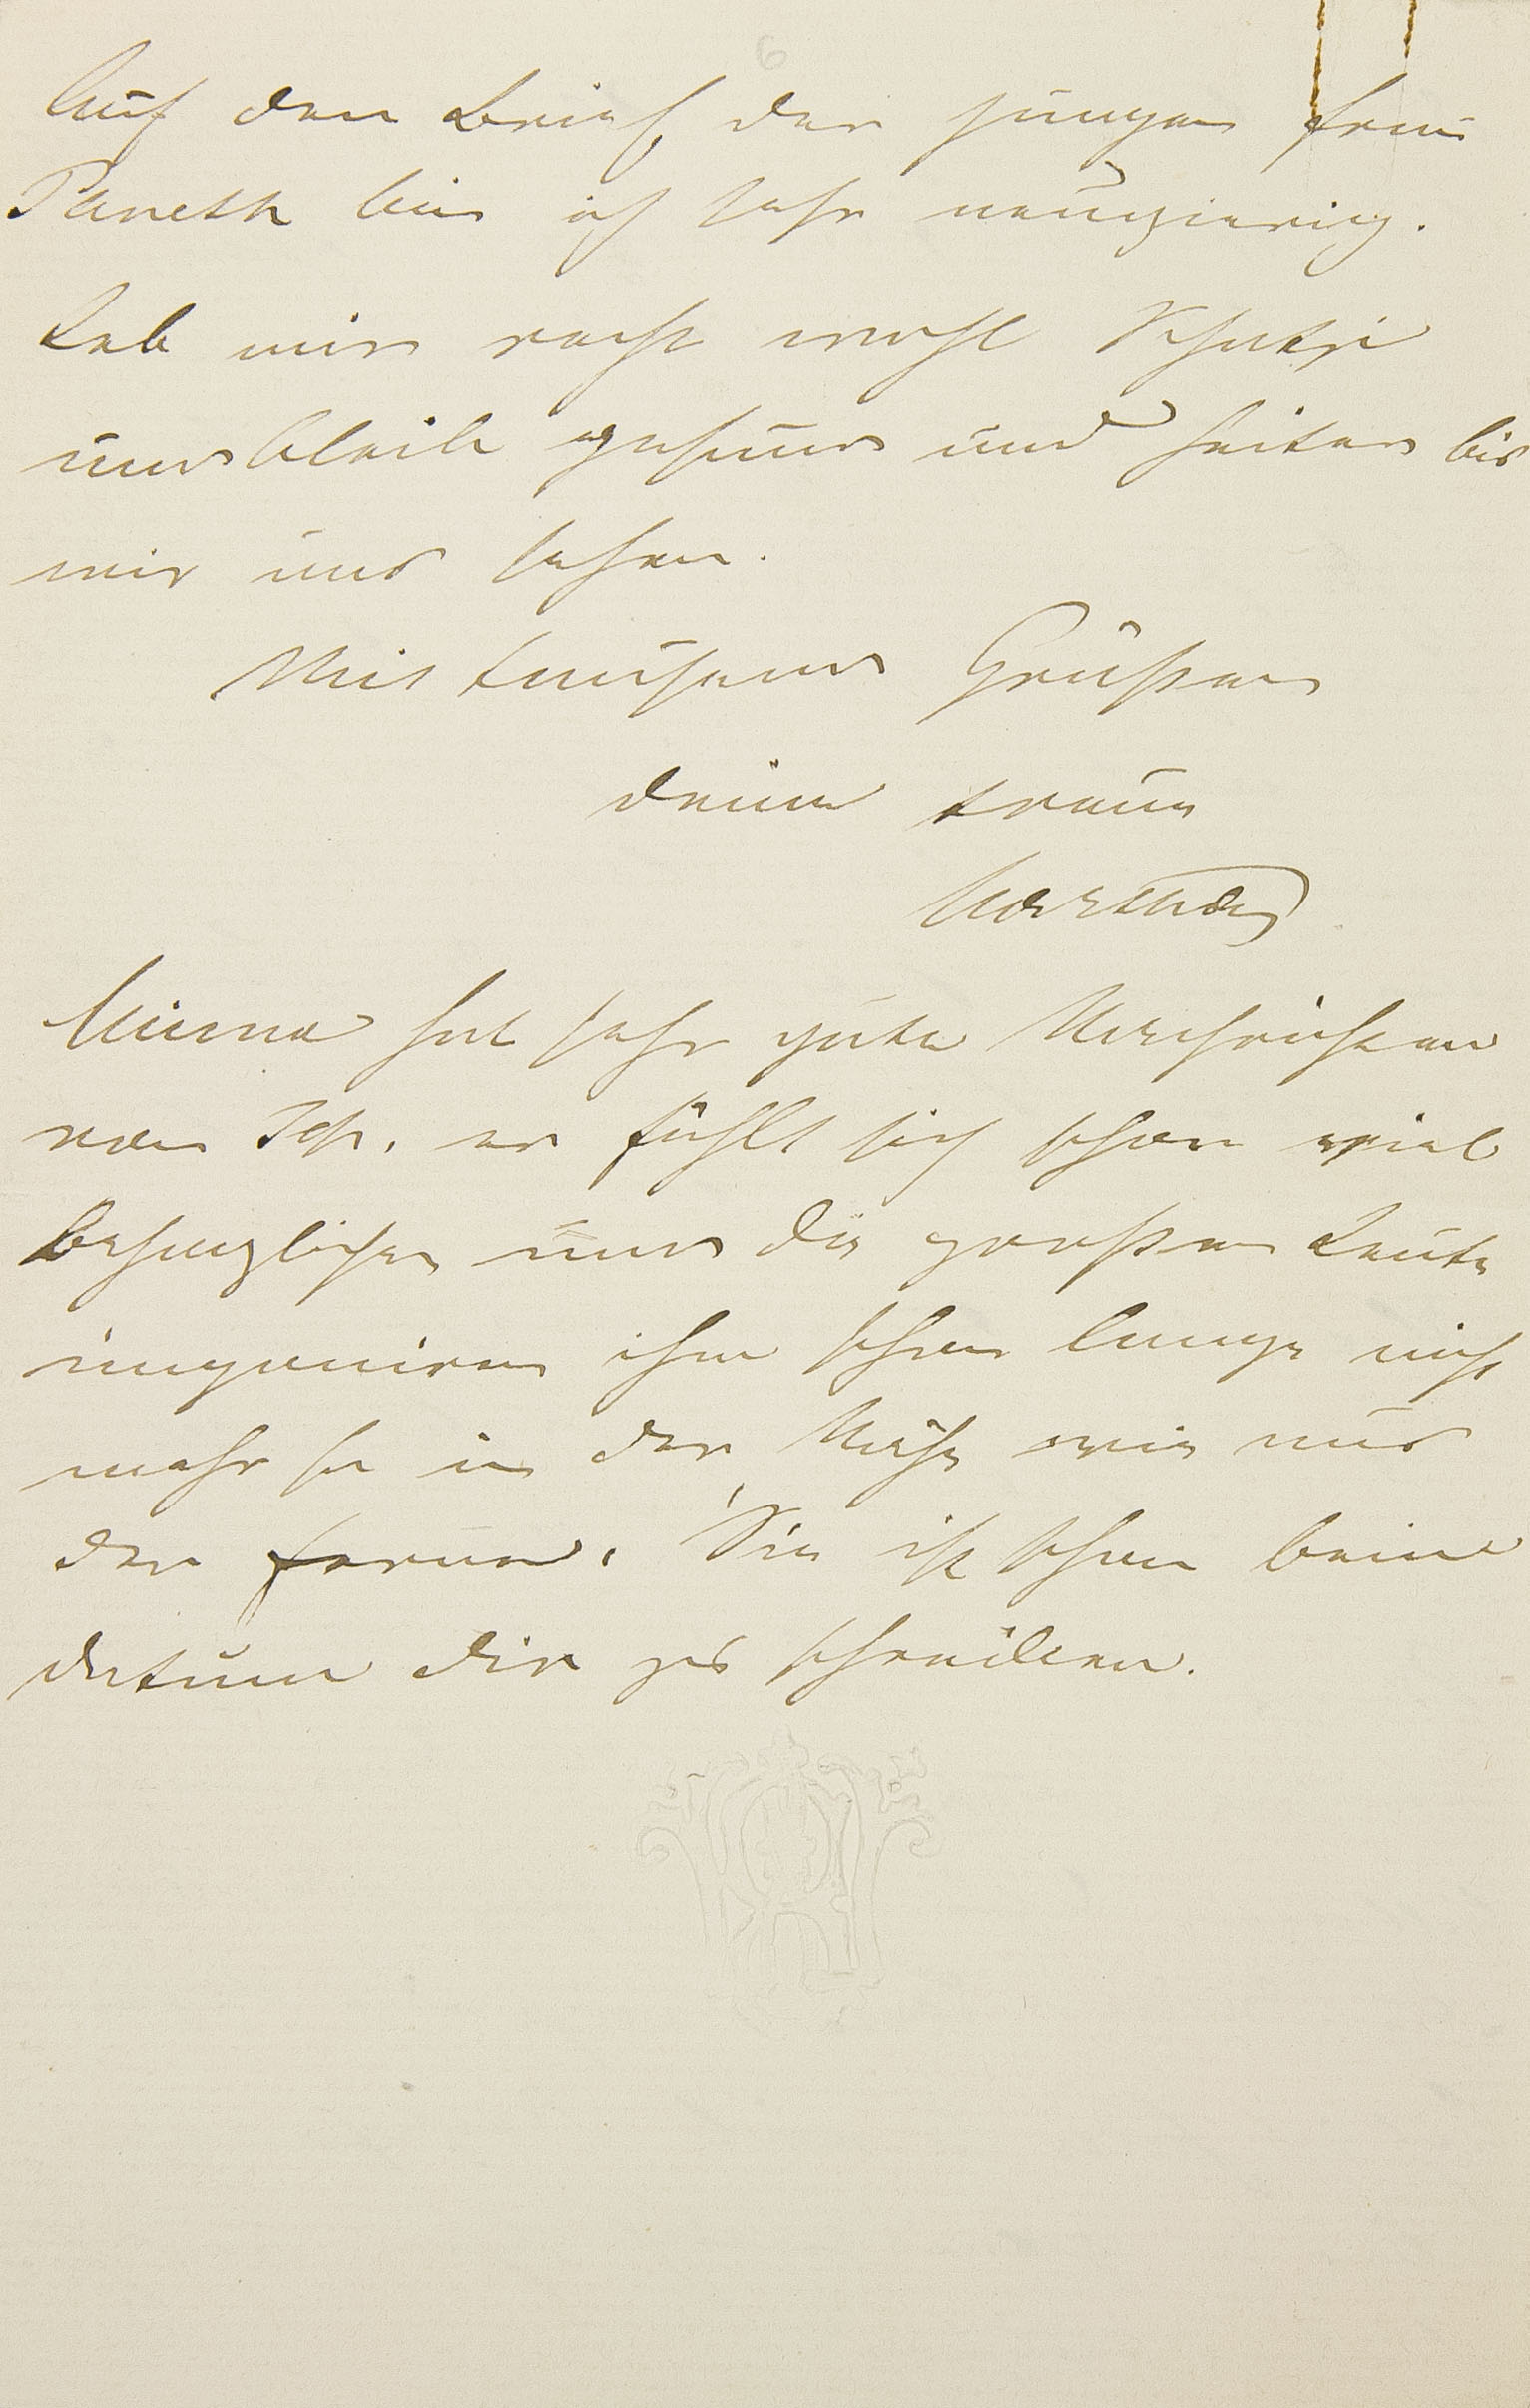 6
Auf den Brief der jungen Frau
Paneth bin ich sehr neugierig.
Leb mir recht wohl Schatzi
und bleib gesund und heiter bis
wir uns sehen.
Mit tausend Grüßen
deine treue
Martha
Minna hat sehr gute Nachrichten
von Sch. er fühlt sich schon viel
behaglicher und die großen Leute
imponiren ihm schon lange nicht
mehr so in der Nähe wie aus
der Ferne. Sie ist schon beim
Datum dir zu schreiben.